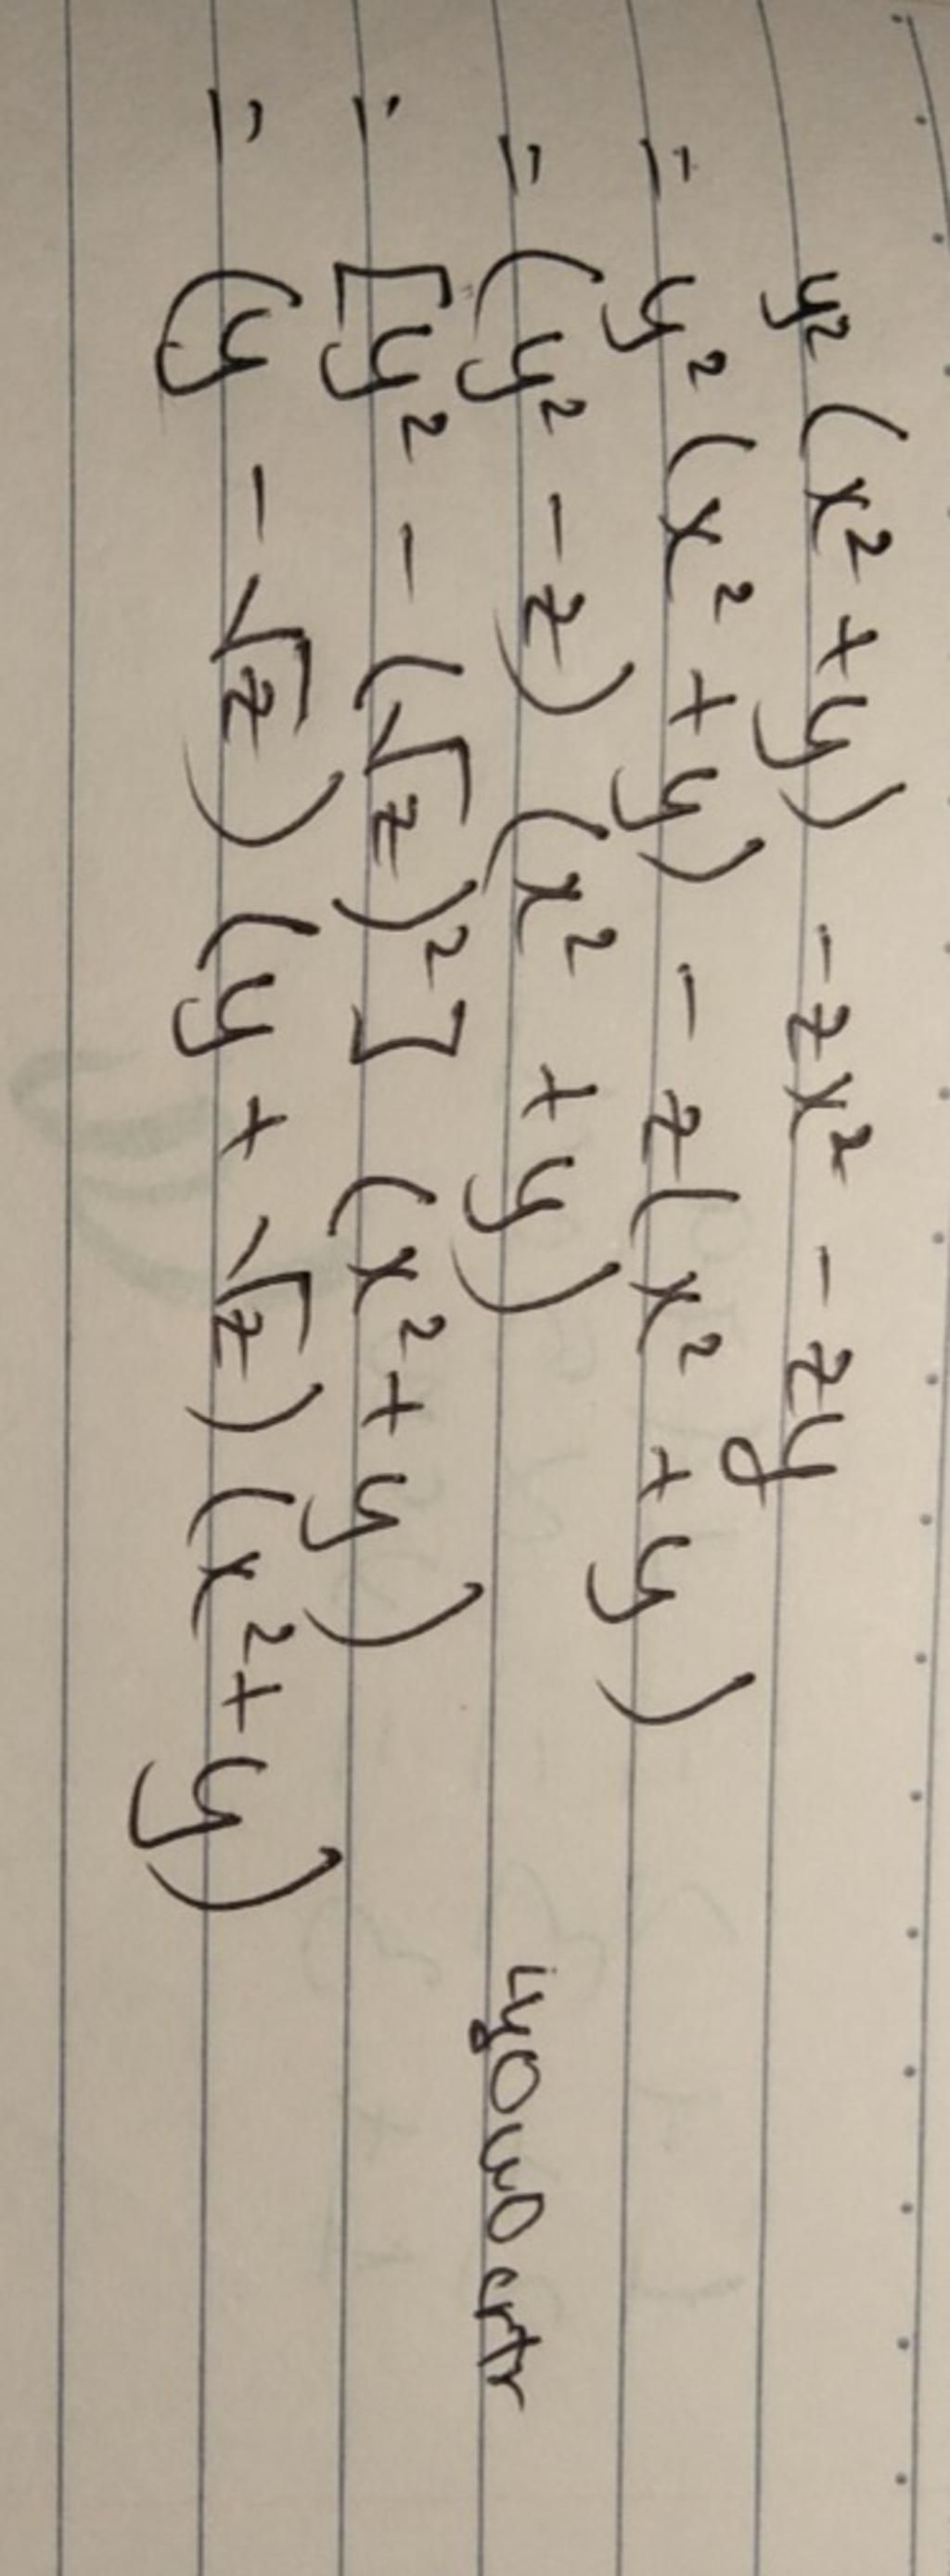 y² (x² + y) - zx² - zy
= y² (x² + y) - z (x² + y)
= (y² - z) (x² + y)
= [y² - (√z)²] (x² + y)
= (y - √z) (y + √z) (x² + y)